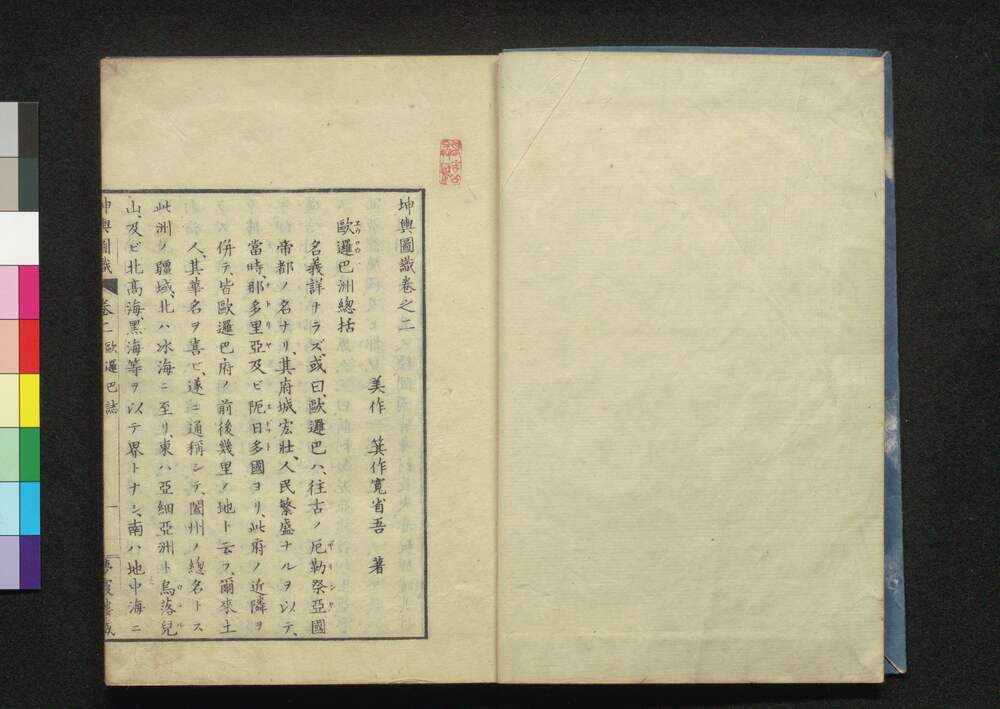 坤輿圖識卷之二
美作 箕作寬省吾 著
歐邏巴洲總括
名義詳ナラズ、或曰、歐邏巴ハ、往古ノ厄勒祭亞國
帝都ノ名ナリ、其府城宏壯、人民繁盛ナルヲ以テ、
當時、那多里亞及ビ阨日多國ヨリ、此府ノ近隣ヲ
併テ、皆歐邏巴府ノ前後幾里ノ地ト云フ、爾來土
人、其華名ヲ喜ビ、遂ニ通稱シテ、闔州ノ總名トス
此洲ノ疆域、北ハ冰海ニ至リ、東ハ亞細亞洲ト烏落兒
山、及ビ北高海、黑海等ヲ以テ界トナシ、南ハ地中海ニ
坤輿圖識 卷二 歐邏巴誌 一